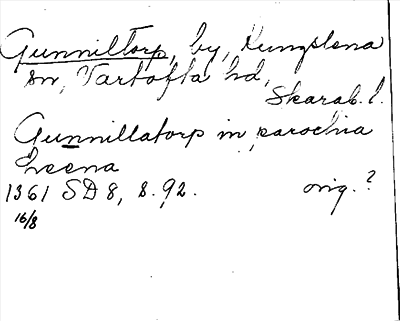 Gunniltorp, by, Kungslena
sn, Vartofta hd,
Skarab. l.
Gunnillatorp in parochia
Leena
1361 SD 8, s. 92. orig.?
16/8